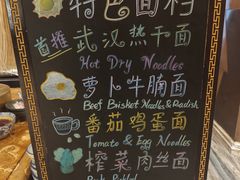 特色面档
首推 武汉热干面
Hot Dry Noodles
萝卜牛腩面
Beef Brisket Noodles & Radish
番茄鸡蛋面
Tomato & Egg Noodles
榨菜肉丝面